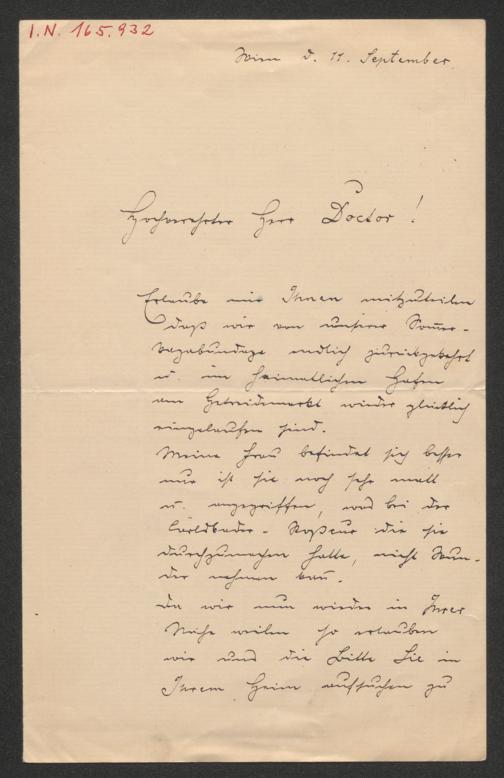 I.N. 165.932
Wien d. 11. September.
Hochverehrter Herr Doctor!
Erlaube mir Ihnen mitzuteilen
daß wir von unserer Som̅er-
vagabundage endlich zurückgekehrt
u. im heimatlichen Hafen
am Getreidemarkt wieder glücklich
eingelaufen sind.
Meine Frau befindet sich besser
nur ist sie noch sehr matt
u. angegriffen, was bei der
Carlsbader-Roßcur die sie
durchzumachen hatte, nicht Wun-
der nehmen kan̅.
Da wir nun wieder in Ihrer
Nähe weilen so erlauben
wir uns die Bitte Sie in
Ihrem Heim aufsuchen zu